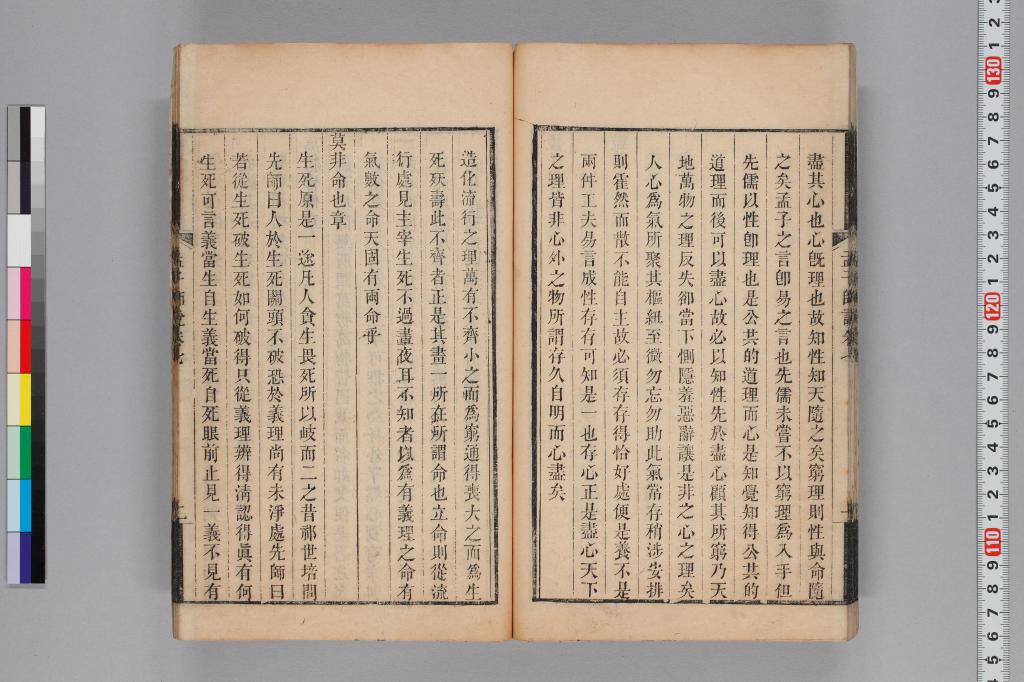 盡其心也心旣理也故知性知天隨之矣窮理則性與命隨
之矣孟子之言卽易之言也先儒未嘗不以窮理爲入手但
先儒以性卽理也是公共的道理而心是知覺知得公共的
道理而後可以盡心故必以知性先於盡心顧其所窮乃天
地萬物之理反失卻當下惻隱羞惡辭讓是非之心之理矣
人心爲氣所聚其樞紐至微勿忘勿助此氣常存稍涉安排
則霍然而散不能自主故必須存存得恰好處便是養不是
兩件工夫易言成性存存可知是一也存心正是盡心天下
之理皆非心外之物所謂存久自明而心盡矣
造化流行之理萬有不齊小之而爲窮通得喪大之而爲生
死殀壽此不齊者正是其畫一所在所謂命也立命則從流
行處見主宰生死不過晝夜耳不知者以爲有義理之命有
氣數之命天固有兩命乎
莫非命也章
生死原是一途凡人貪生畏死所以岐而二之昔祁世培問
先師曰人於生死關頭不破恐於義理尚有未淨處先師曰
若從生死破生死如何破得只從義理辨得淸認得眞有何
生死可言義當生自生義當死自死眼前止見一義不見有